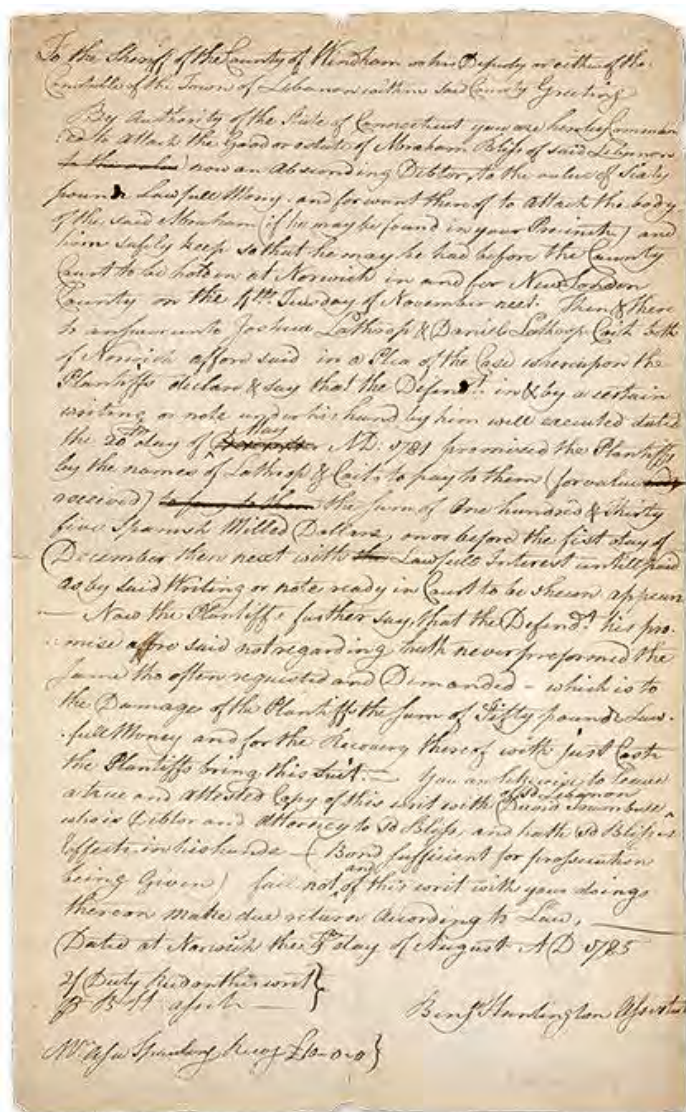 To the Sheriff of the County of Windham or his Deputy or either of the
Constables of the Town of Lebanon within said County Greeting
By Authority of the State of Connecticut you are hereby Comman
:ed to Attach the Good or estate of Abraham Bliss of said Lebanon
now an Absconding Debtor, to the value of Sixty
pounds Lawfull Mony. and for want thereof to Attach the body
of the said Abraham (if he may be found in your Precincts) and
him safely keep so that he may be had before the County
Court to be holden at Norwich in and for New London
County on the 4th. Tuesday of November next. Then & there
to answer unto Joshua Lathrop & Daniel Lathrop Coit both
of Norwich afforesaid in a Plea of the Case whereupon the
Plantiffs declare & say that the Defendt. in & by a certain
writing or note under his hand by him well executed dated
the 20th day of May AD: 1781 promised the Plantiffs
by the names of Lathrop & Coit to pay to them (for value
received) to pay to them the sum of One hundred & thirty
five Spanish Milled Dollers, on or before the fist day of
December then next with the Lawfull Interest untill paid
as by said Writing or note ready in Court to be shewn appears
— Now the Plantiffs further say, that the Defendt. his pro-
:mise affore said not regarding hath never preformed the
same tho often requested and Demanded – which is to
the Damage of the Plantiffs the sum of Fifty pounds Law-
:full Money and for the Recovery thereof with just Costs
the Plantiffs bring this Suit.— You are likewise to leave
a true and Attested Copy of this writ with David Trumbull of sd Lebanon
who is Debtor and Attorney to sd Bliss, and hath sd Bliss's
Effects in his hands — (Bond sufficient for prossecution
being Given) fail not and of this writ with your doings
thereon make due return According to Law,
Dated at Norwich the day of August AD 1785
2/ Duty on this writ
Benjn Huntington Assistant
Mr. Asa £10-0-0